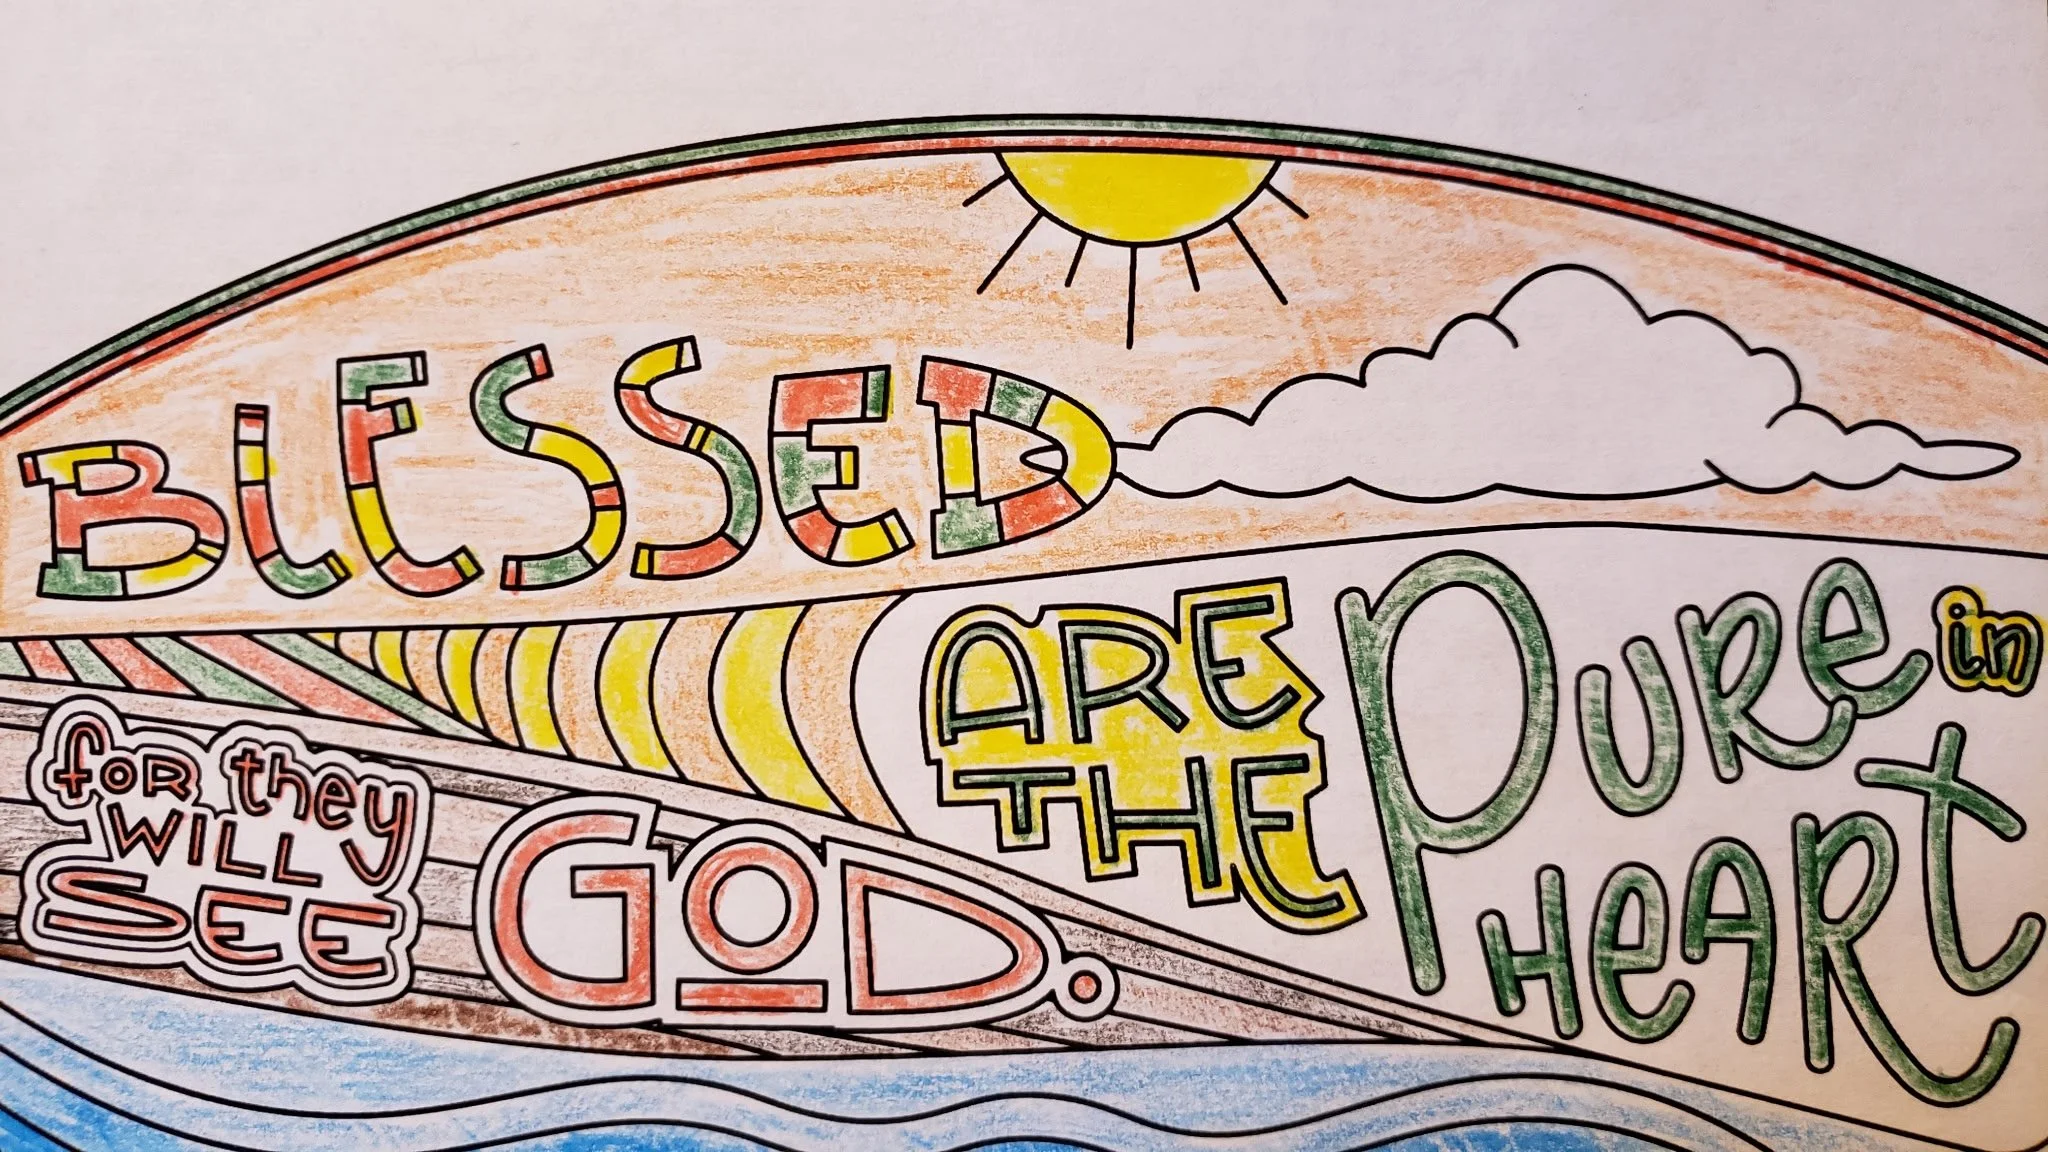 BLESSED
ARE
THE
PURE in
HEART
for they
WILL
SEE
GOD.